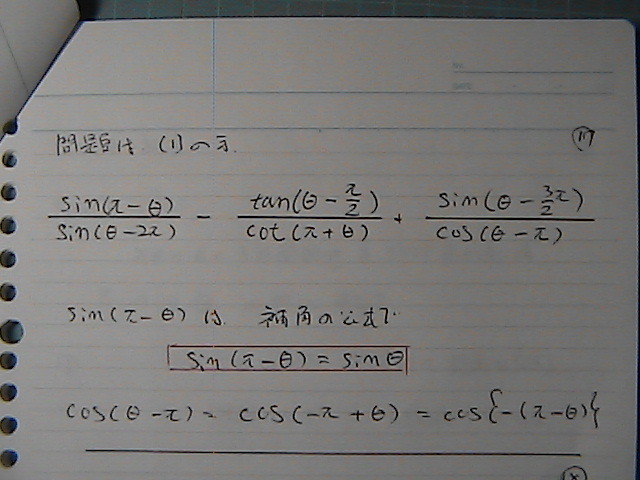 No.
DATE
問題は (1)の方. 17
sin(π−θ)/sin(θ−2π) − tan(θ−π/2)/cot(π+θ) + sin(θ−3/2π)/cos(θ−π)
sin(π−θ)は 補角の公式で
sin(π−θ) = sinθ
cos(θ−π) = cos(−π+θ) = cos{−(π−θ)}